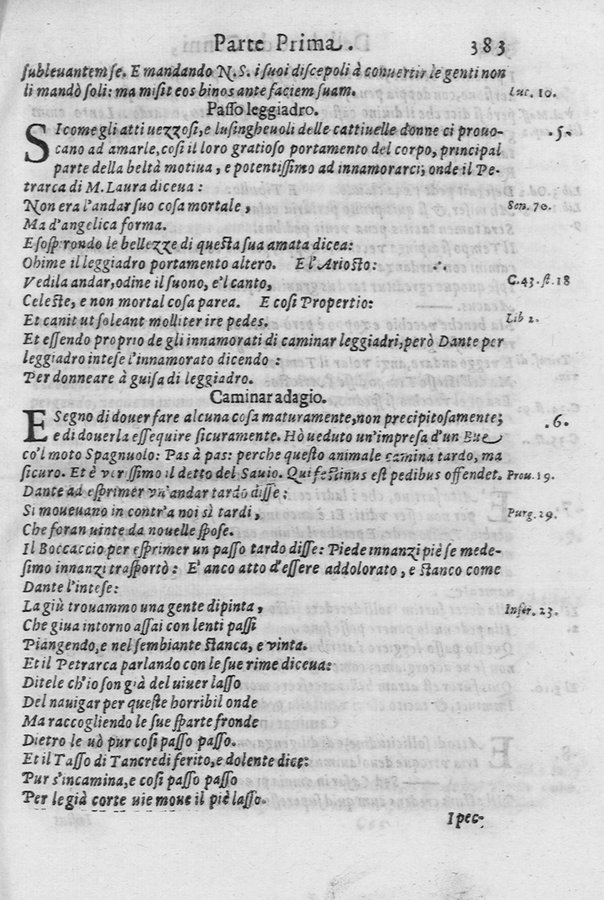 Parte Prima. 383
subleuantem se. E mandando N.S. i suoi discepoli à conuertir le genti non
li mandò soli: ma misit eos binos ante faciem suam. Luc. 10.
Passo leggiadro.
SI come gli atti uezzosi, e lusingheuoli delle cattiuelle donne ci prouo- .5.
cano ad amarle, così il loro gratioso portamento del corpo, principal
parte della beltà motiua, e potentissimo ad innamorarci; onde il Pe-
trarca di M. Laura diceua:
Non era l'andar suo cosa mortale, Son. 70.
Ma d'angelica forma.
E sospirando le bellezze di questa sua amata dicea:
Ohime il leggiadro portamento altero. E l'Ariosto:
Vedila andar, odine il suono, e'l canto, C.43. st. 18
Celeste, e non mortal cosa parea. E così Propertio:
Et canit ut soleant molliter ire pedes. Lib 2.
Et essendo proprio de gli innamorati di caminar leggiadri, però Dante per
leggiadro intese l'innamorato dicendo:
Per donneare à guisa di leggiadro.
Caminar adagio.
E Segno di douer fare alcuna cosa maturamente, non precipitosamente; .6.
e di douerla essequire sicuramente. Hò ueduto un'impresa d'un Bue
co'l moto Spagnuolo: Pas à pas: perche questo animale camina tardo, ma
sicuro. Et è verissimo il detto del Sauio. Qui festinus est pedibus offendet. Prou. 19.
Dante ad esprimer vn'andar tardo disse:
Si moueuano in contr'a noi sì tardi, Purg. 29.
Che foran uinte da nouelle spose.
Il Boccaccio per esprimer un passo tardo disse: Piede innanzi piè se mede-
simo innanzi trasportò: E' anco atto d'essere addolorato, e stanco come
Dante l'intese:
La giù trouammo una gente dipinta, Infer. 23.
Che giua intorno assai con lenti passi
Piangendo, e nel sembiante stanca, e vinta.
Et il Petrarca parlando con le sue rime diceua:
Ditele ch'io son già del uiuer lasso
Del nauigar per queste horribil onde
Ma raccogliendo le sue sparte fronde
Dietro le uò pur così passo passo.
Et il Tasso di Tancredi ferito, e dolente dice:
Pur s'incamina, e così passo passo
Per le già corte uie moue il piè lasso.
I pec-